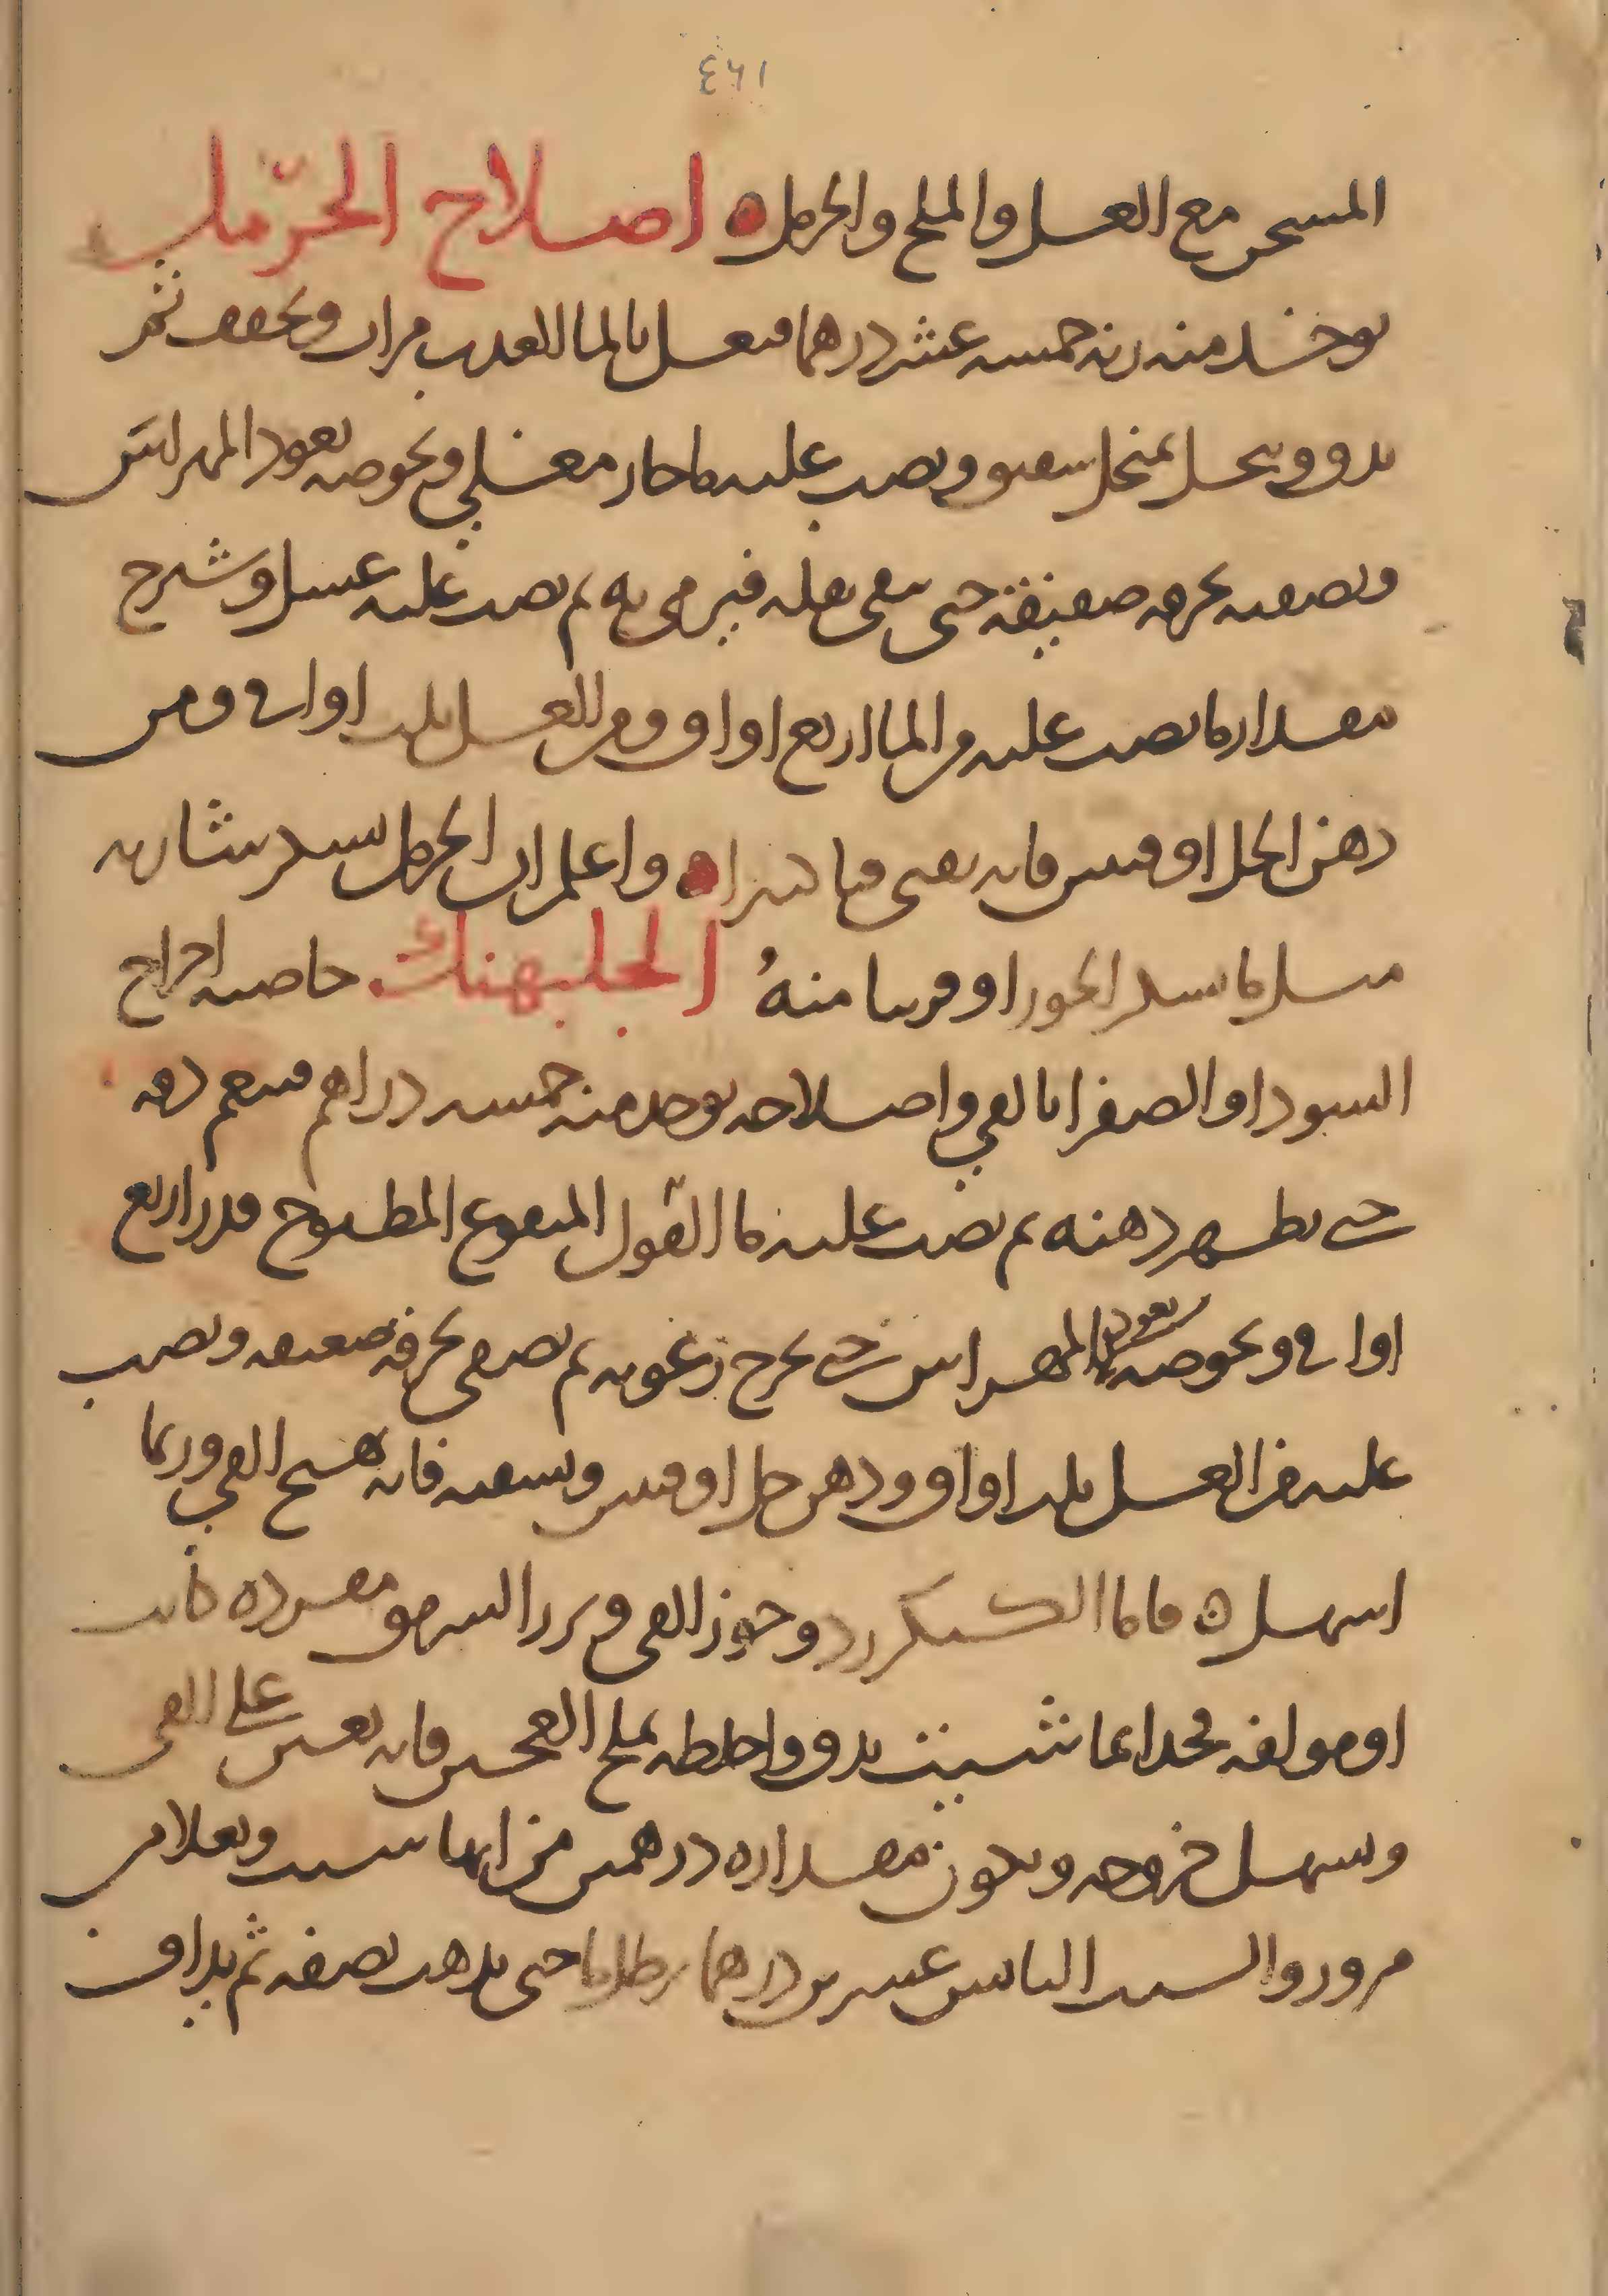 ٤٦١
المسخن مع العسل والملح والحرمل ه اصلاح الحرّمل
يوخذ منه زنه خمسه عشر درهما فيغسل بالما العذب مرار ويجفف ثم
يدق وينخل بمنخل صفيق ويصب عليه ما حار مغلي ويخوضه بعود المهراس
ويصفيه بخرقه صفيقه حتى يبقى ثفله فيرمى به ثم يصب عليه عسل وشيرج
مقدار ما يصب عليه من الما اربع اواق ومن العسل ثلث اواقى ومن
دهن الحل اوقيتين فانه يقيى قيا كثيرا ه واعلم ان الحرمل يسكر شاربه
مثل ما يسكر الخمر او قريبا منهُ الجلبهنك خاصيته اخراج
السودا والصفرا بالقي واصلاحه يوخذ منه خمسه دراهم فينعم دقه
حتى يظهر دهنه ثم يصب عليه ما الفول المنقوع المطبوخ قدر اربع
اواقى ويخوضه بعود المهراس حتى يخرج رغوته ثم يصفى بخرقه صفيقه ويصب
عليه من العسل ثلث اواق ودهن حل اوقيتين ويسقيه فانه يهيج القي وربما
اسهل ه فاما الكنكرزد وجوز القى وبزر السرمق مفرده كانت
او مولفه فخد ايما شيت يدق واخلطه بملح العجين فانه يعين على القى
ويسهل خروجه ويكون مقداره درهمين من ايها شيت ويغلا من
بزور والشبت اليابس عشرين درهما برطل ما حتى يذهب نصفه ثم يداف